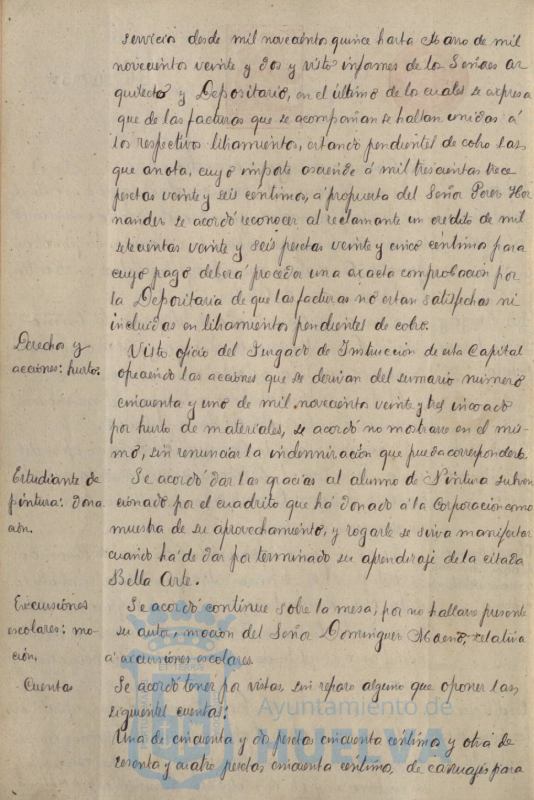 servicio desde mil novecientos quince hasta Marzo de mil
novecientos veinte y dos y visto informes de los Señores ar
quilecto y Depositario, en el último de lo cuales se expresa
que de las facturas que se acompañan se hallan unidas á
los respectivos libramientos, estando pendientes de cobro las
que anota, cuyo importe asciende á mil trescientas trece
pesetas veinte y seis centimos, á propuesta del Señor Perez Her
nandez se acordó reconocer al reclamante un crédito de mil
setecientas veinte y seis pesetas veinte y cinco céntimos para
cuyo pago deberá proceder una exacta comprobación por
la Depositaria de que las facturas nó estan satisfechas ni
incluidas en libramientos pendientes de cobro.
Derechos y
acciones: hurto.
Visto oficio del Juzgado de Instrucción de esta Capital
ofreciendo las acciones que se derivan del sumario número
cincuenta y uno de mil novecientos veinte y tres incoado
por hurto de materiales, se acordó no mostrarse en el mis-
mo, sin renunciar la indemnización que pueda corresponderle.
Estudiante de
pintura: dona
ción.
Se acordó dar las gracias al alumno de Pintura subven
cionado por el cuadrito que há donado á la Corporación como
muestra de su aprovechamiento, y rogarle se sirva manifestar
cuando há de dar por terminado su aprendizaje de la citada
Bella Arte.
Excursiones
escolares: mo-
ción.
Se acordó continúe sobre la mesa, por no hallarse presente
su autor, moción del Señor Dominguez Maeso, relativa
á excursiones escolares.
Cuentas
Se acordó tener por vistas, sin reparo alguno que oponer las
siguientes cuentas:
Una de cincuenta y dos pesetas cincuenta céntimos y otra de
sesenta y cuatro pesetas cincuenta centimos, de carruajes para
Ayuntamiento de
HUELVA